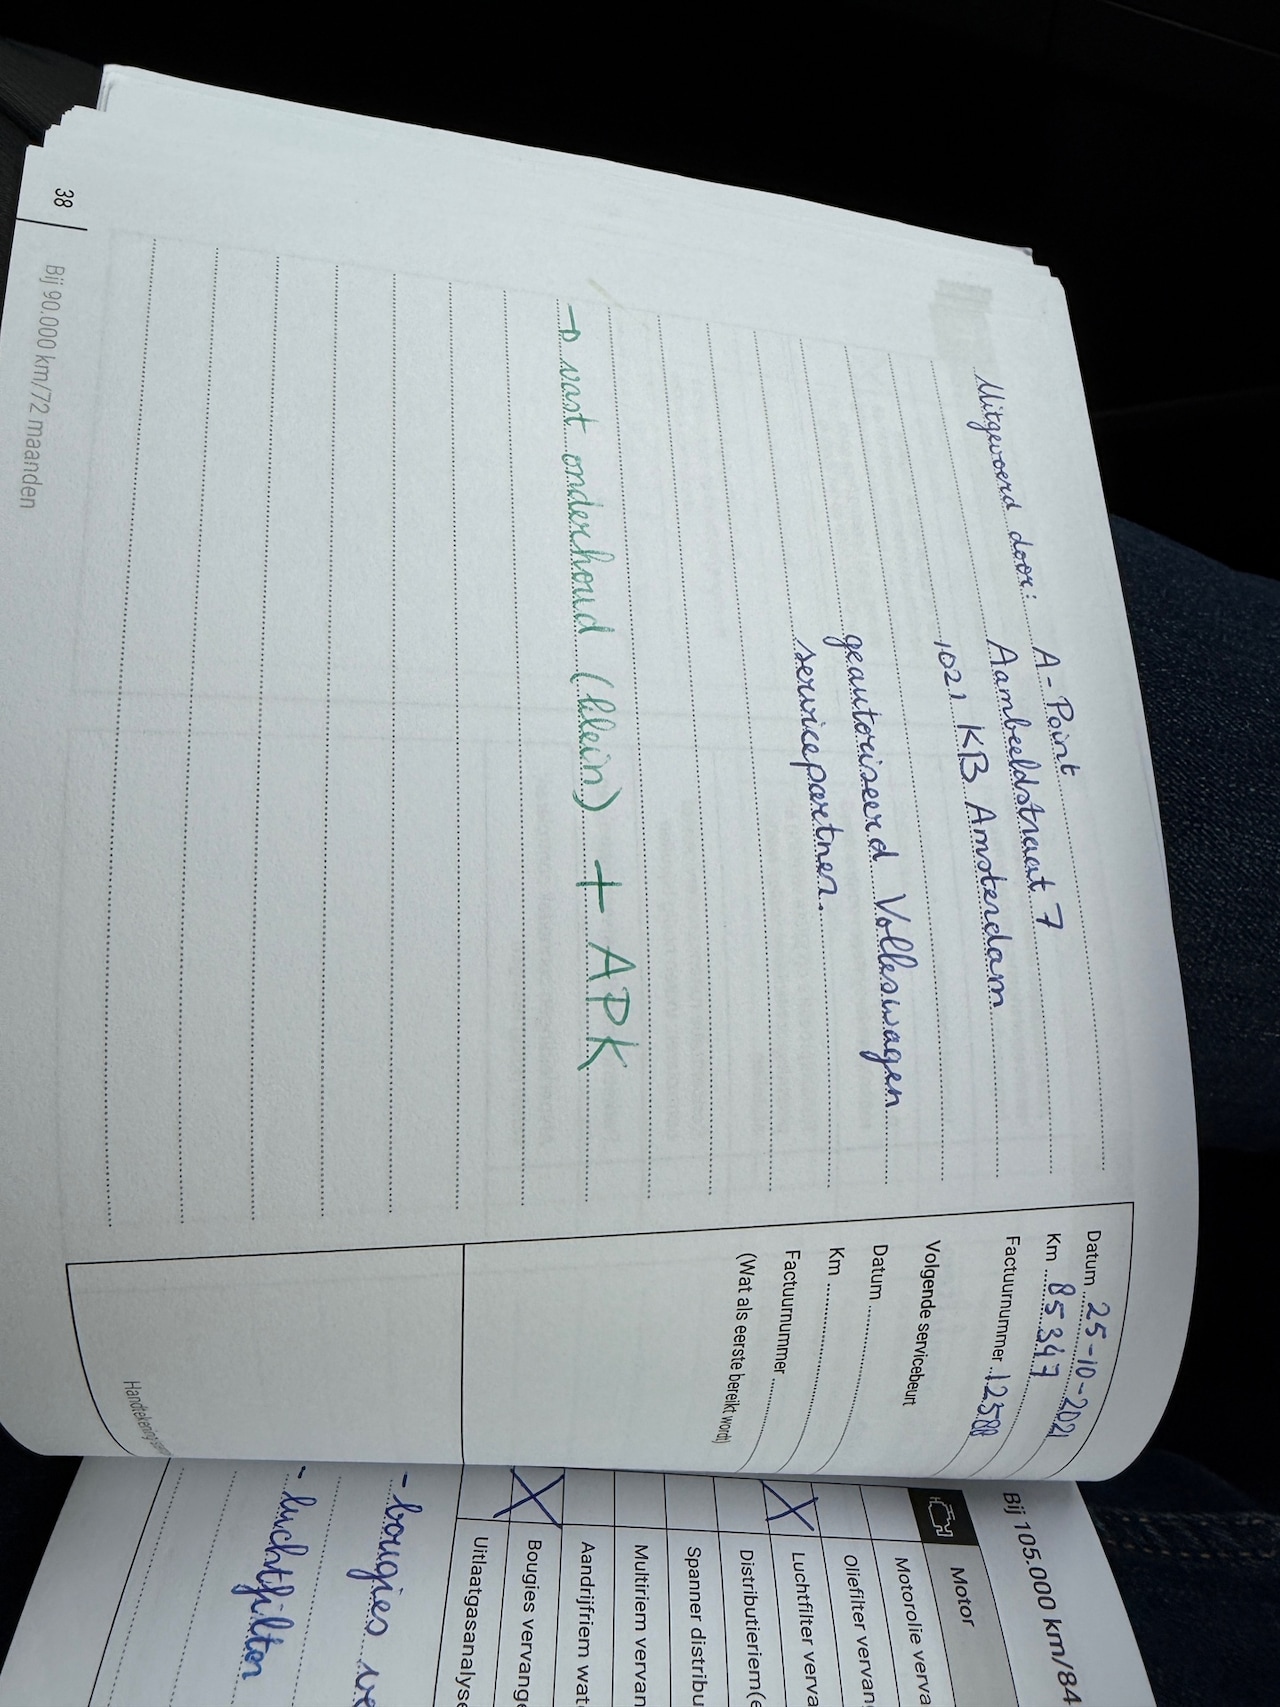 Uitgevoerd door: A-Point
Aambeeldstraat 7
1021 KB Amsterdam
geautoriseerd Volkswagen
servicepartner.
→ vast onderhoud (klein) + APK
38
Bij 90.000 km/72 maanden
Datum 25-10-2021
Km 85347
Factuurnummer 12588
Volgende servicebeurt
Datum
Km
Factuurnummer
(Wat als eerste bereikt wordt)
Handtekening
Bij 105.000 km/84
Motor
Motorolie verva
Oliefilter vervan
X Luchtfilter verva
Distributieriem(e
Spanner distribu
Multiriem vervan
Aandrijfriem wate
X Bougies vervange
Uitlaatgasanalyse
- bougies ve
- luchtfilter